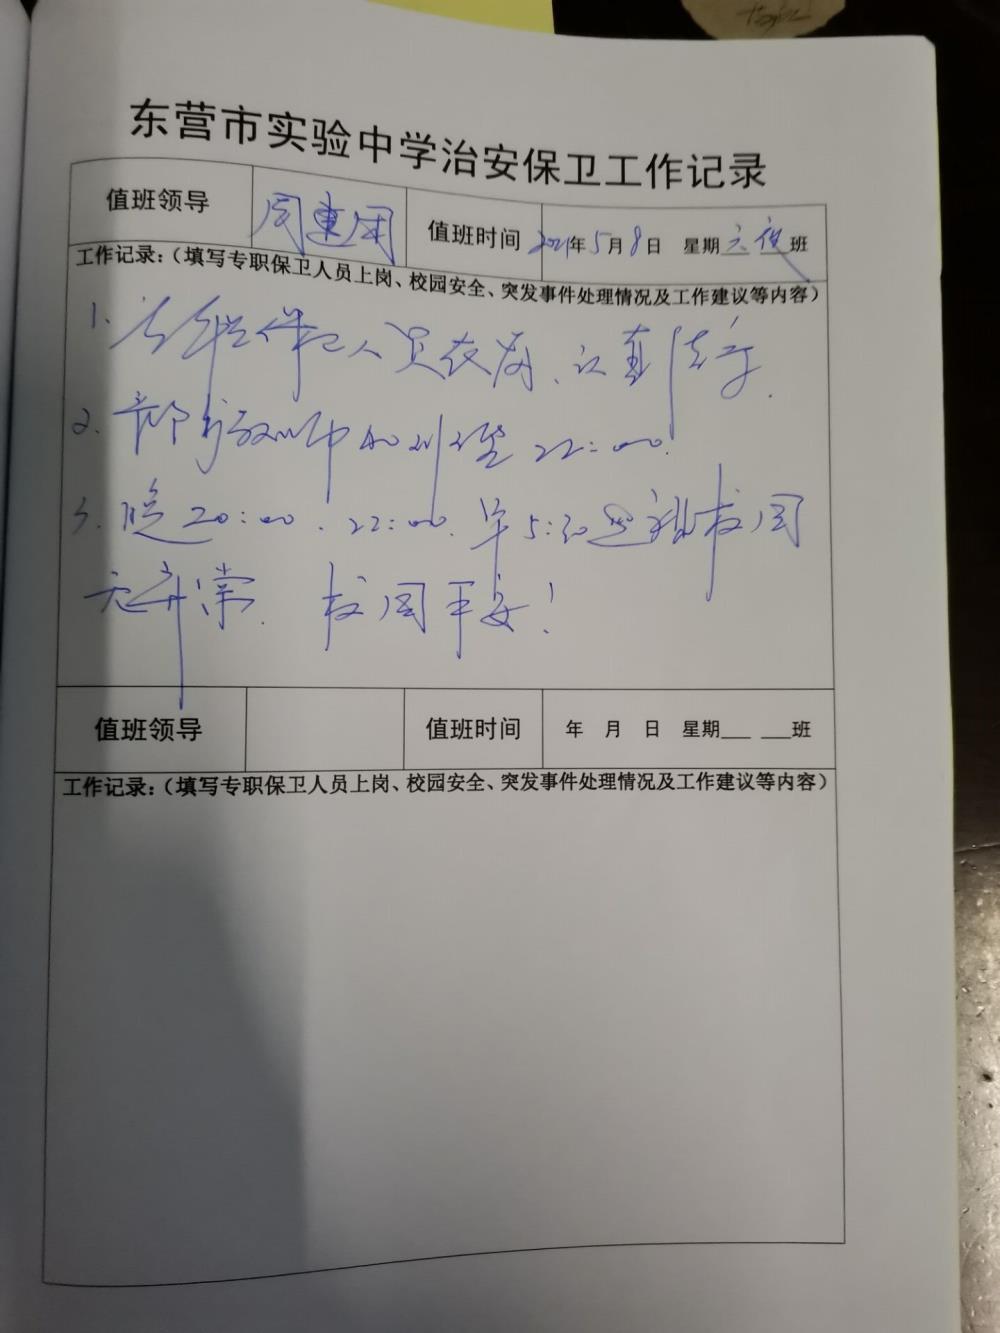 东营市实验中学治安保卫工作记录
值班领导 周 值班时间 2021年5月8日 星期六夜班
工作记录：（填写专职保卫人员上岗、校园安全、突发事件处理情况及工作建议等内容）
1. 专职保卫人员在岗、认真
2. 部分教师 22:00.
3. 晚20:00.22:00.早5:30巡视校园
无异常. 校园平安！
值班领导 值班时间 年 月 日 星期___ ___班
工作记录：（填写专职保卫人员上岗、校园安全、突发事件处理情况及工作建议等内容）